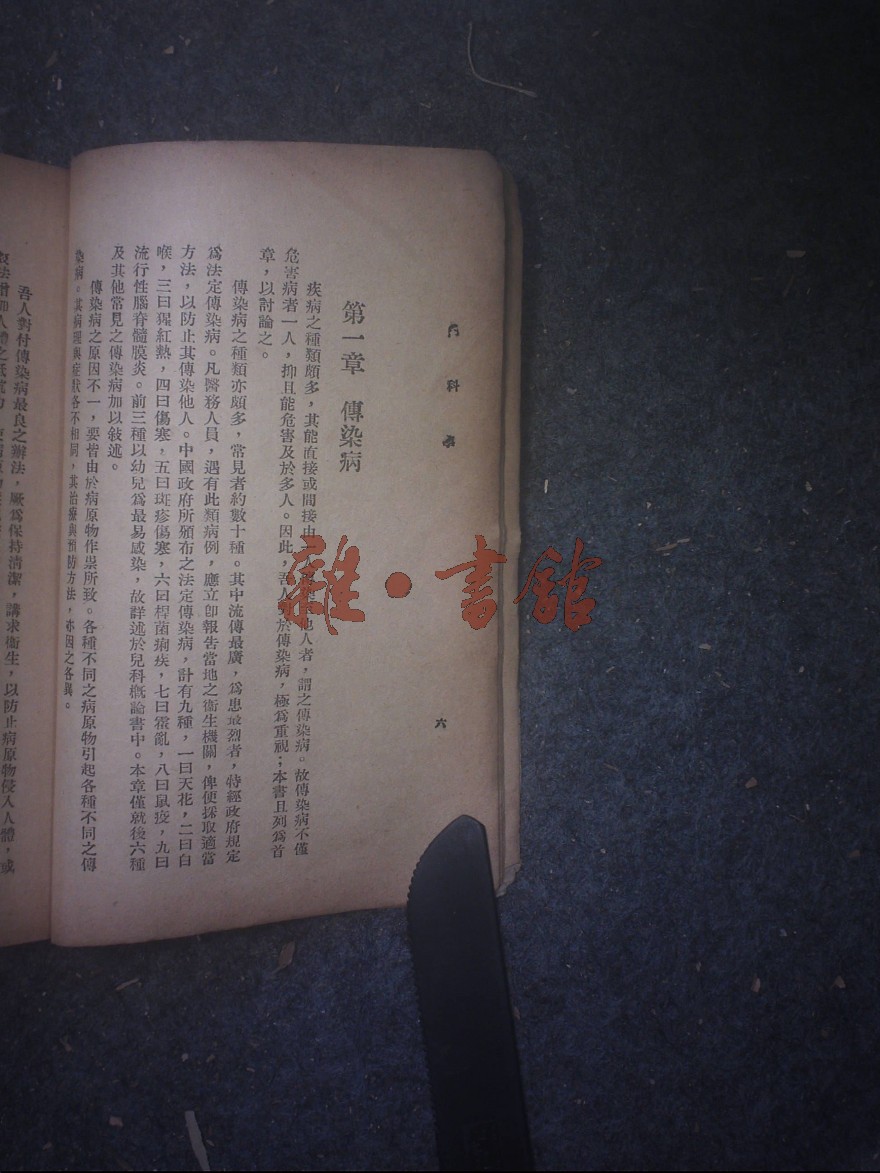 內科學
六
第一章 傳染病
疾病之種類頗多，其能直接或間接由一他人者，謂之傳染病。故傳染病不僅
危害病者一人，抑且能危害及於多人。因此，吾人對於傳染病，極爲重視；本書且列爲首
章，以討論之。
傳染病之種類亦頗多，常見者約數十種。其中流傳最廣，爲患最烈者，特經政府規定
爲法定傳染病。凡醫務人員，遇有此類病例，應立卽報告當地之衞生機關，俾便採取適當
方法，以防止其傳染他人。中國政府所頒布之法定傳染病，計有九種，一曰天花，二曰白
喉，三曰猩紅熱，四曰傷寒，五曰斑疹傷寒，六曰桿菌痢疾，七曰霍亂，八曰鼠疫，九曰
流行性腦脊髓膜炎。前三種以幼兒爲最易感染，故詳述於兒科槪論書中。本章僅就後六種
及其他常見之傳染病加以敍述。
傳染病之原因不一，要皆由於病原物作祟所致。各種不同之病原物引起各種不同之傳
染病。其病理與症狀各不相同，其治療與預防方法，亦因之各異。
吾人對付傳染病最良之辦法，厥爲保持淸潔，講求衞生，以防止病原物侵入人體，或
設法增加人體之抵抗力
雜·書館